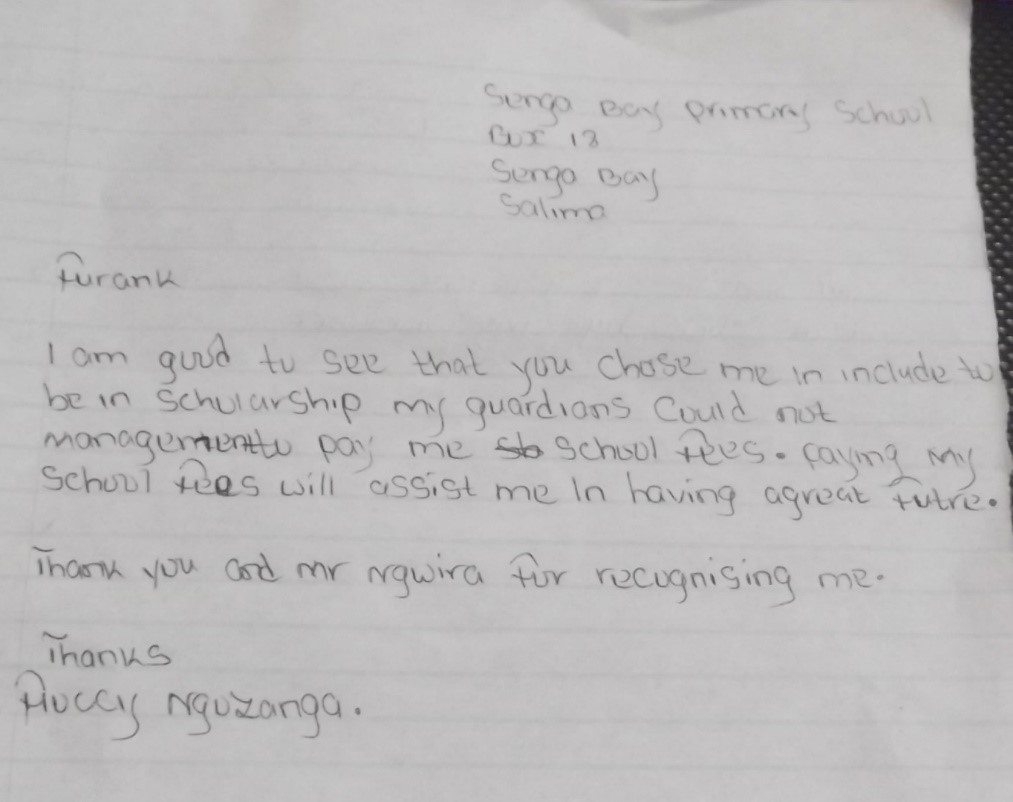 Senga Bay primary School
Box 18
Senga Bay
Salima
Furank
I am good to see that you chose me in include to
be in scholarship my guardians could not
managementto pay me School fees. Paying my
School fees will assist me In having agreat futre.
Thank you and mr Ngwira for recognising me.
Thanks
Floccy Ngozanga.